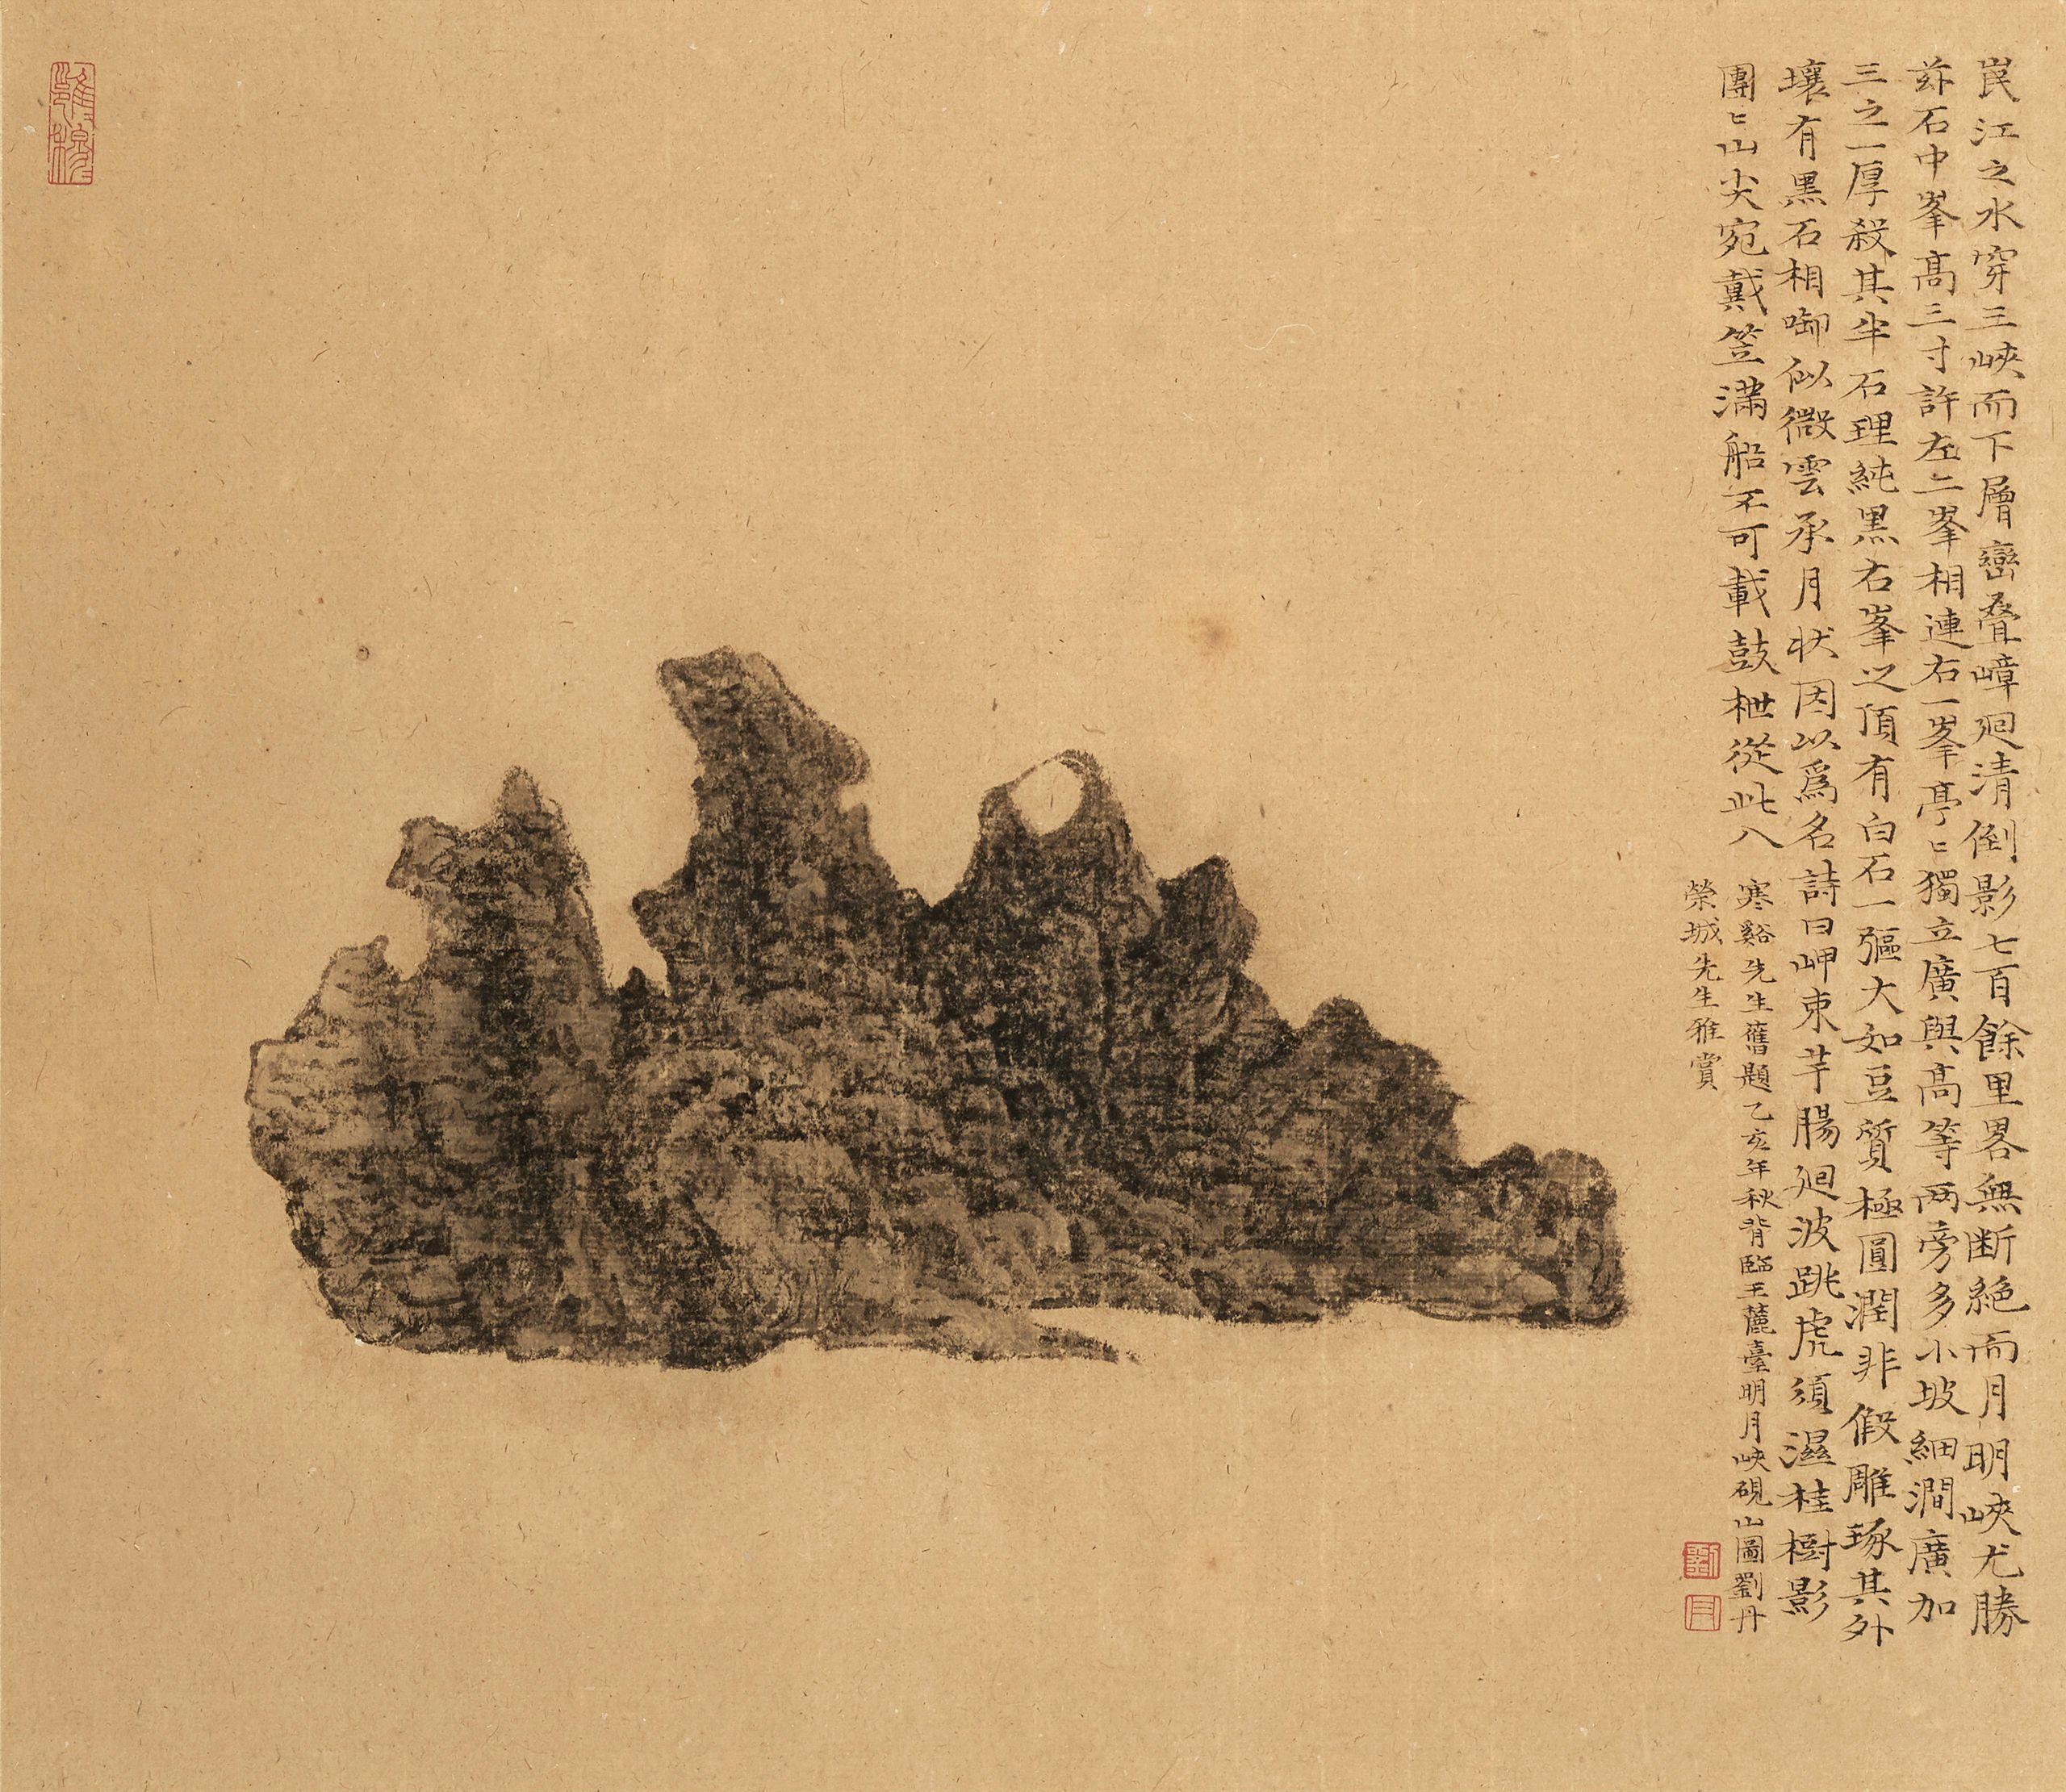 崑江之水穿三峽而下層巒叠嶂廻清倒影七百餘里畧無断絶而月明峽尤勝
兹石中峯髙三寸許左二峯相連右一峯亭〻獨立廣與髙等兩旁多小坡細澗廣加
三之一厚殺其半石理純黒右峯之頂有白石一彄大如豆質極圓潤非假雕琢其外
壤有黒石相啣似微雲承月状因以爲名詩曰岬束芋腸廻波跳虎須濕桂樹影
團〻山尖宛戴笠滿船不可載鼓枻從此八
寒谿先生舊題乙亥年秋背臨王麓臺明月峽硯山圖劉丹
榮城先生雅賞
劉
丹